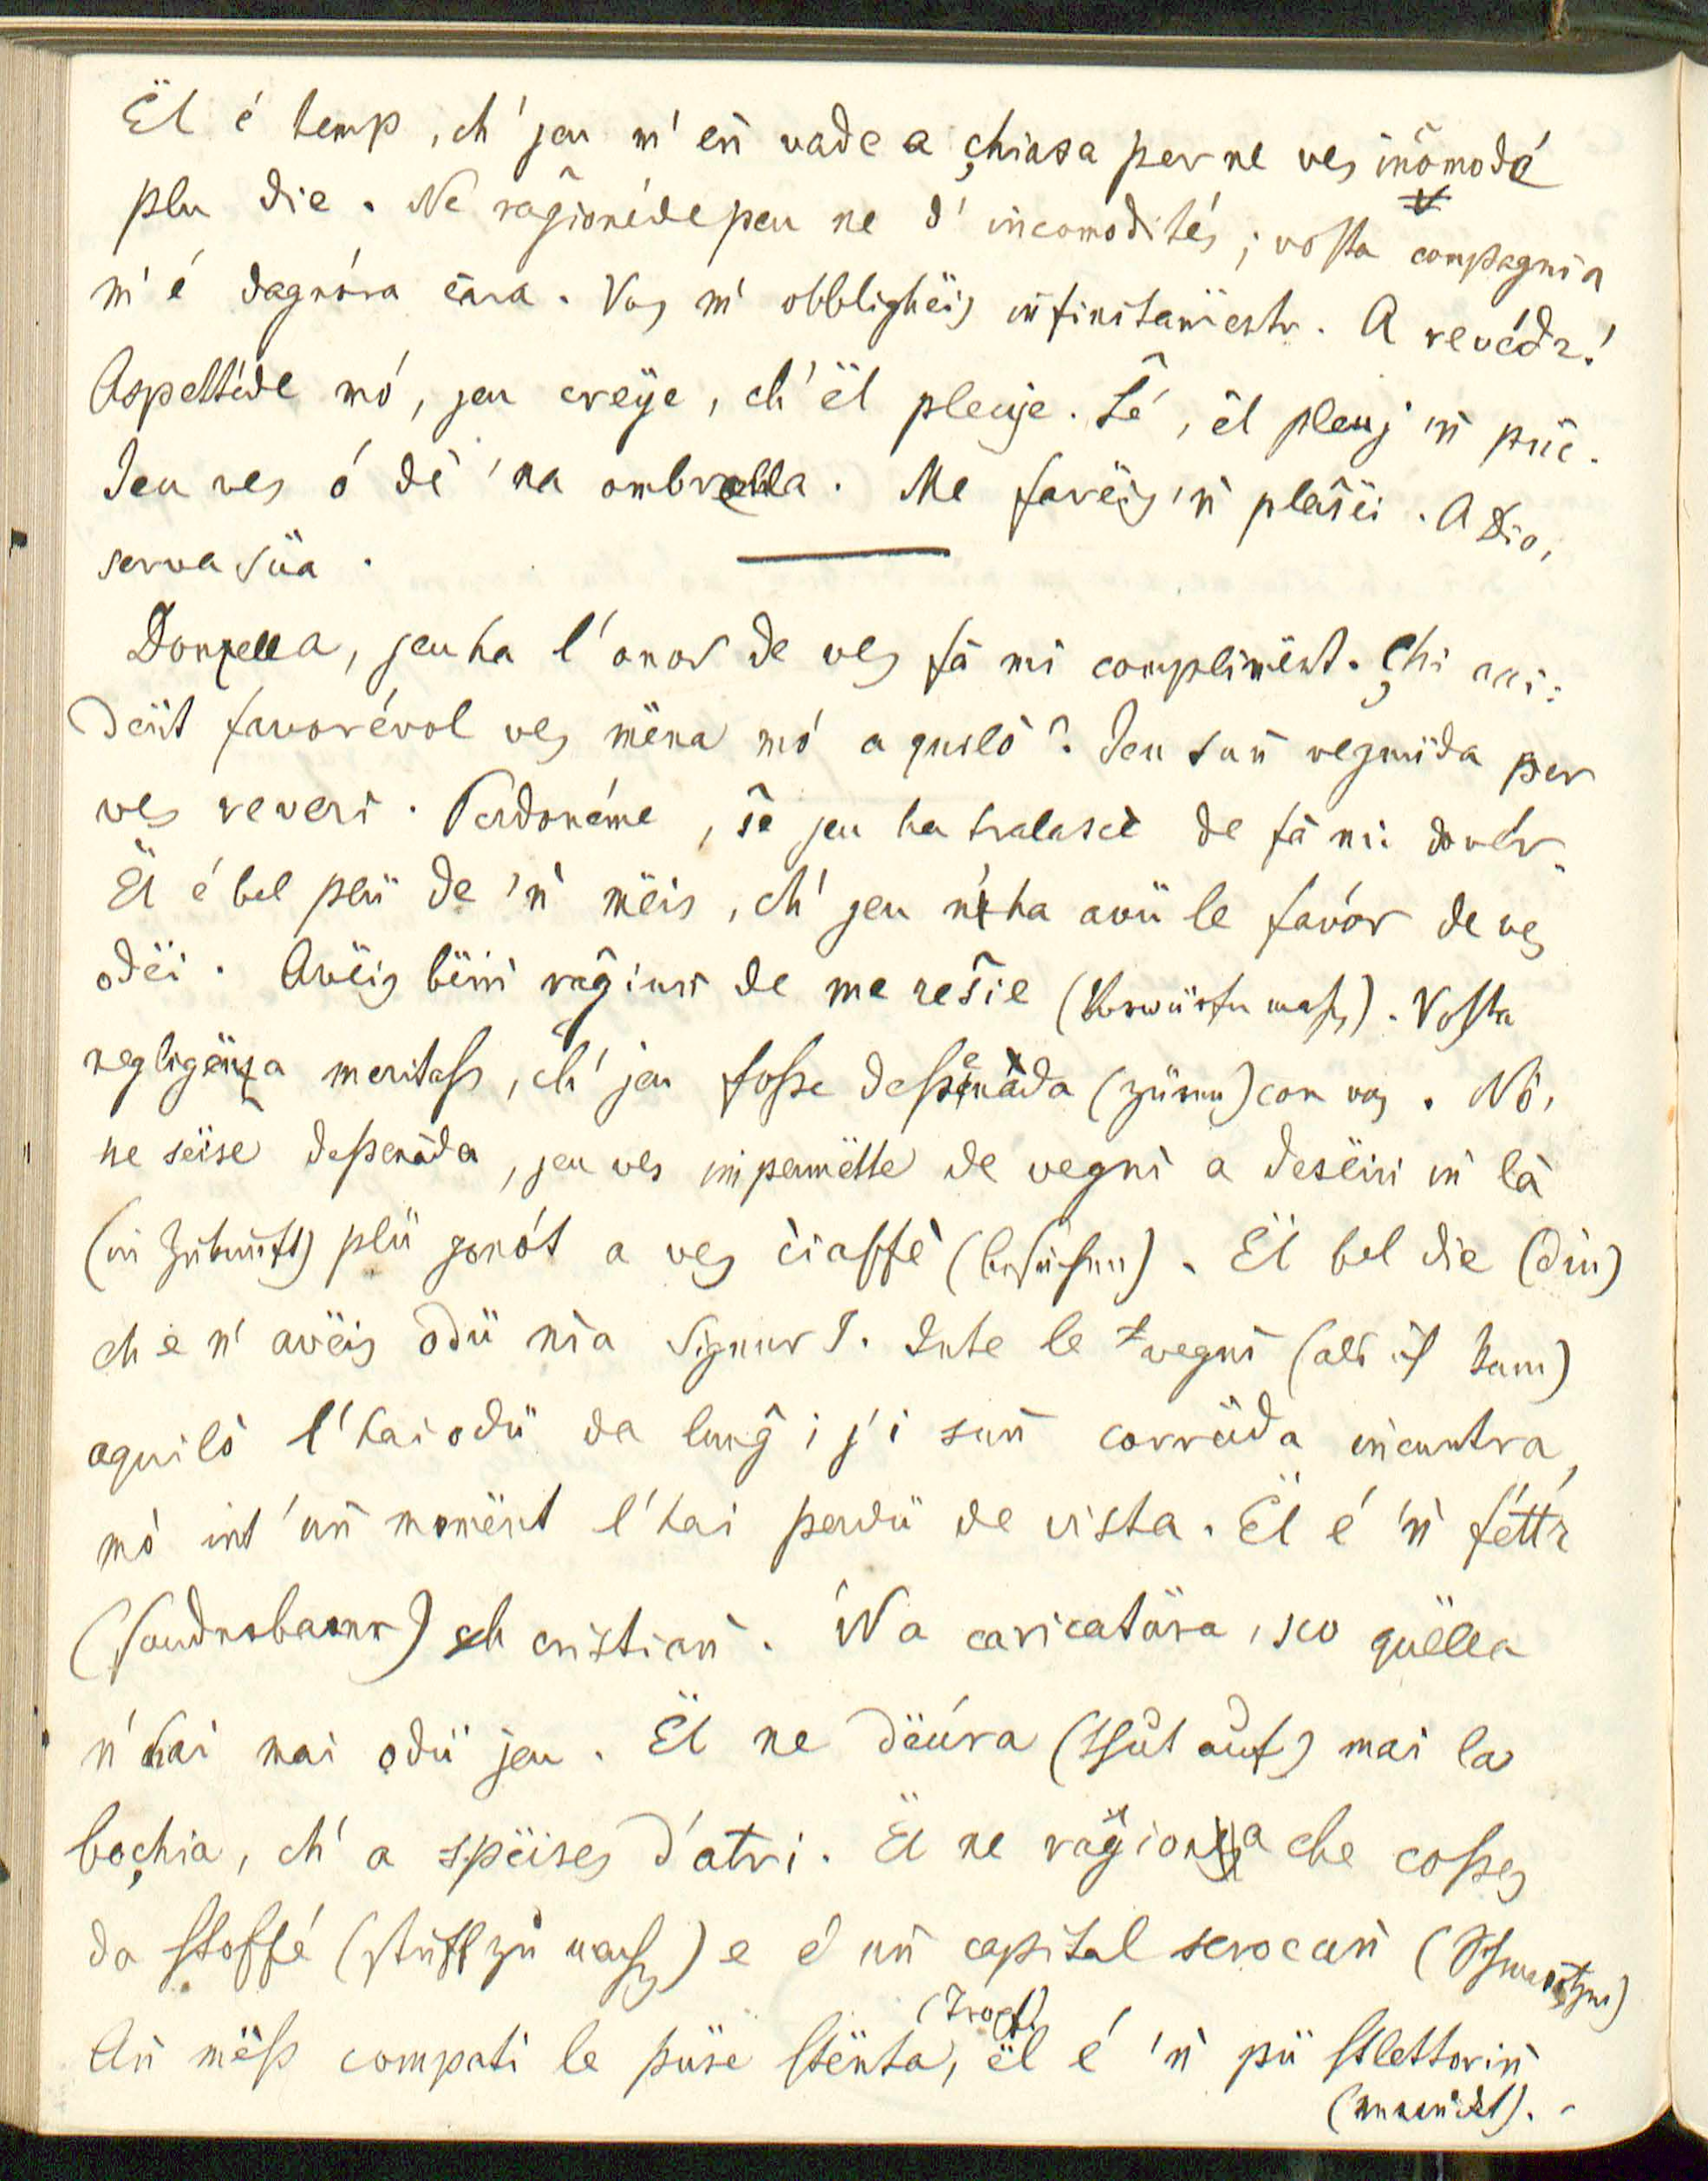 Ël é temp, ch' jeu m' eñ vade a çhiasa per ne ves iñcomodé
plu die. Ne raĝionéde peu ne d' iñcomodités; vosta compagnia
m' é dagnára ćara. Vos m' obblighëis iñfinitamënter. A revédr!
Aspettéde mó, jeu creÿe, ch' ël pleuje. Ŝé, ël pleuj iñ püc.
Jeu ves ó dè 'na ombrella. Me farëis 'ñ plaŝëi. A Dio,
serva süa.
Donzella, jeu ha l' onor de ves fà mi complimënt. Çhi acci-
dënt favorévol ves mëna mó a quiló? Jeu suñ vegnüda per
ves reveri. Perdonéme, ŝe jeu ha tralascè de fà mi dovér.
Ël é bel plü de 'ñ mëis, ch' jeu n' ha avü le favór de ves
odëi. Avëis bëiñ raĝiuñ de me resŝie (Vorwürfe mach.). Vosta
negligënza meritass, ch' jeu fosse dessenàda (zürnen) con vos. Nò,
ne sëise dessenàda, jeu ves impermëtte de vegnì a desëiñ iñ là
(in Zukunft) plü gonót a ves ćiaffè (besuchen). Ël bel die (diu)
ch e n' avëis odü nia Signur I. Inte le vegnì (als ich kam)
aquiló l' hai odü da lunĝ i j' i suñ corrüda iñcuntra,
mò int' uñ momënt l' hai perdü de vista. Ël é 'ñ féttr
(sonderbarer) cristiañ. 'Na caricatüra, sco quëlla
n' hai mai odü jeu. Ël ne dëúra (thut auf) mai la
boçhia, ch' a spëises d'atri. Ël ne raĝiona che cosses
da stoffé (stuff zu mach.) e é uñ capital scrocuñ (Schmarotzer)
Añ mëss compati le püre stënta, (Tropf) ël é 'ñ pü stlettoriñ